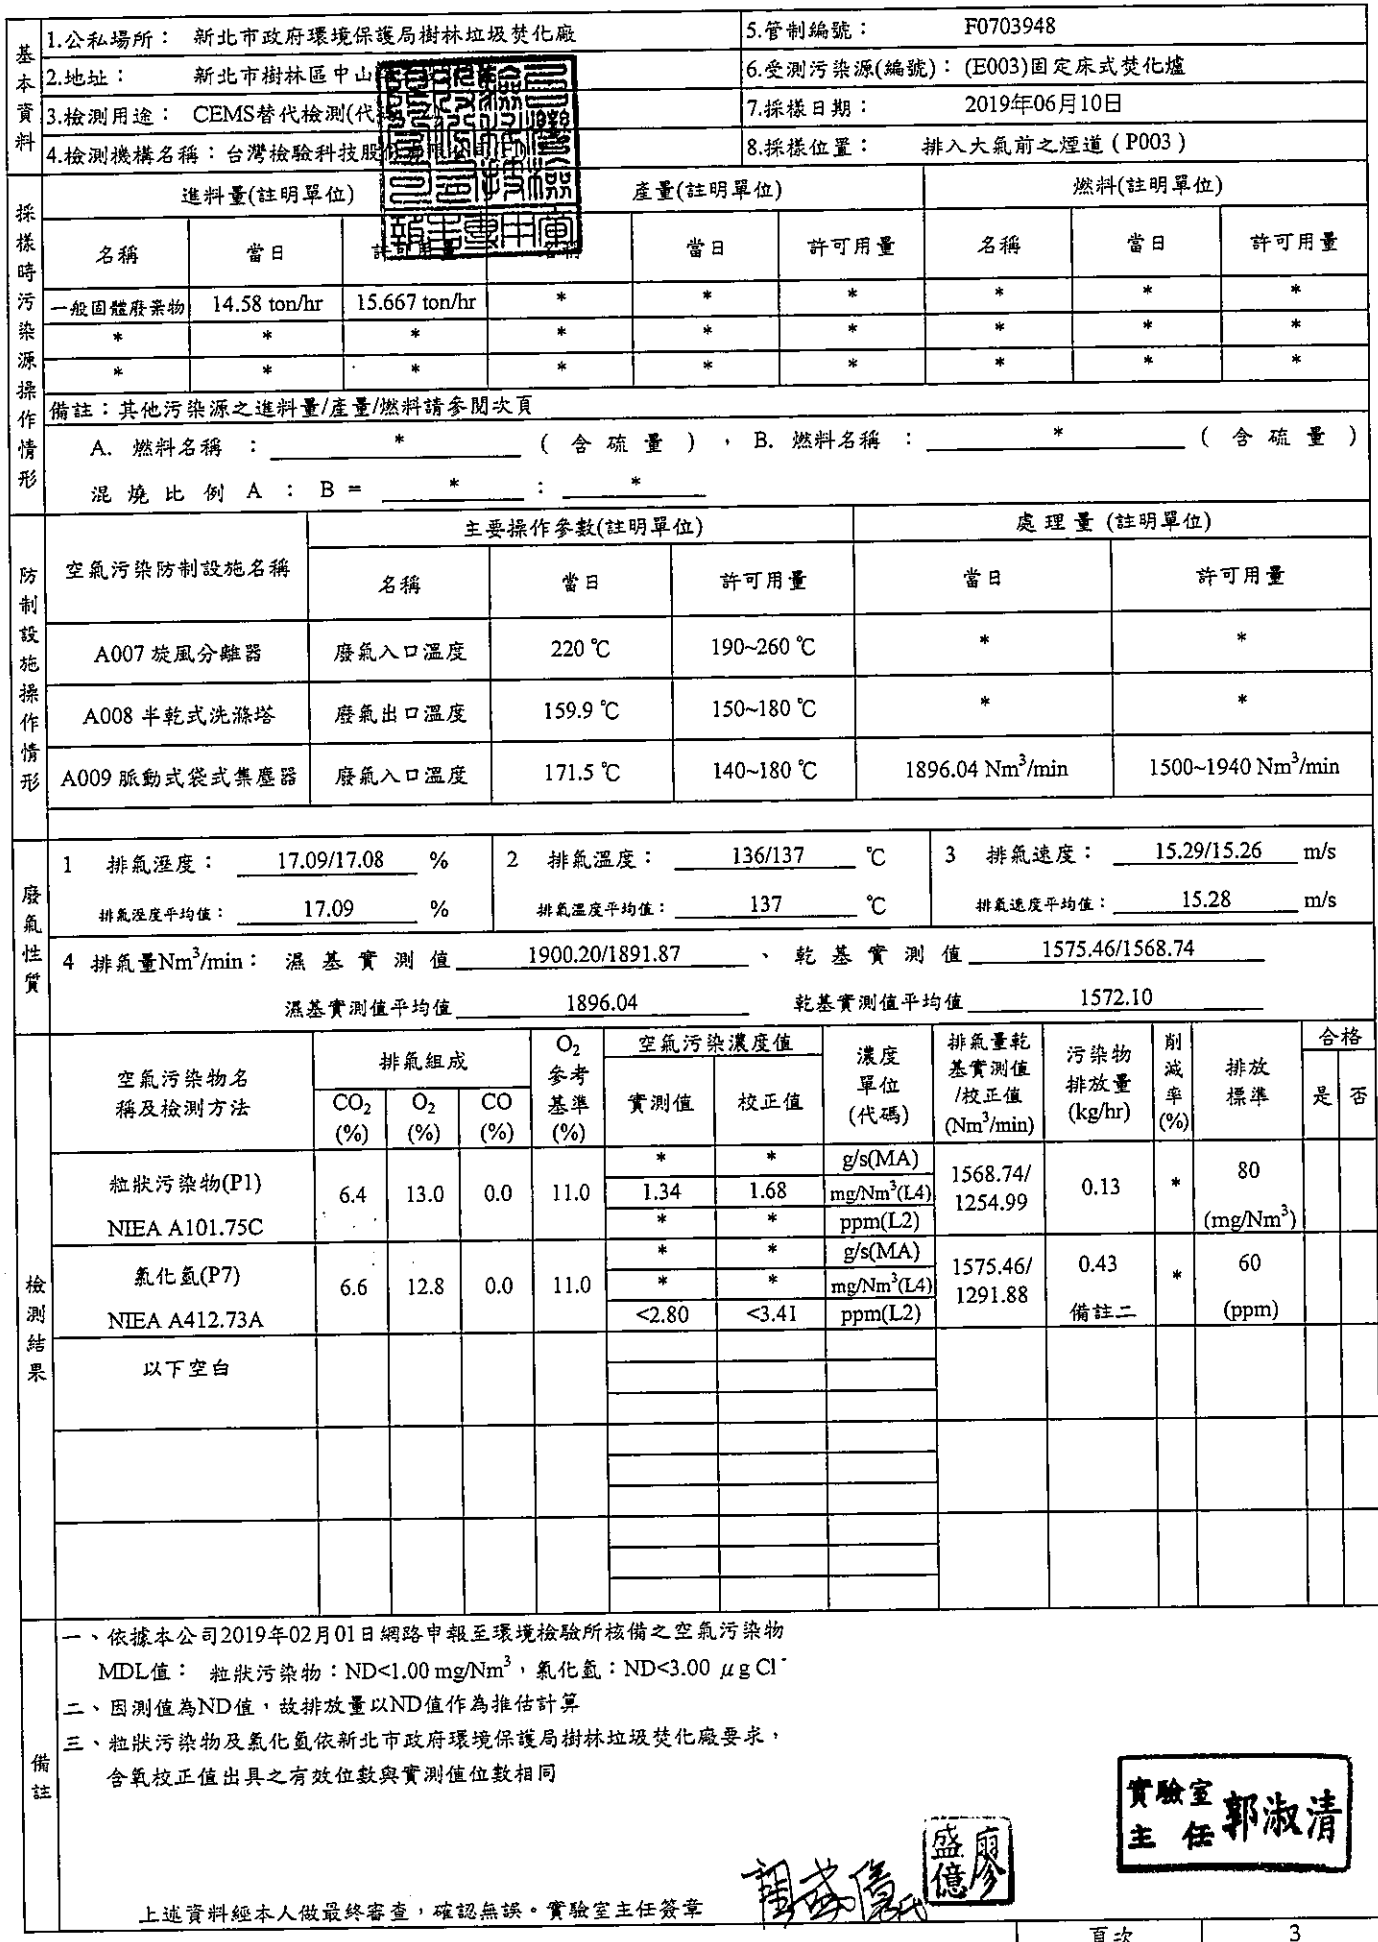 基本資料
1.公私場所： 新北市政府環境保護局樹林垃圾焚化廠
5.管制編號： F0703948
2.地址： 新北市樹林區中山
6.受測污染源(編號)：(E003)固定床式焚化爐
3.檢測用途： CEMS替代檢測(代
7.採樣日期： 2019年06月10日
4.檢測機構名稱：台灣檢驗科技股
8.採樣位置： 排入大氣前之煙道（P003）
採樣時污染源操作情形
進料量(註明單位) 產量(註明單位) 燃料(註明單位)
名稱 當日 許可用量 名稱 當日 許可用量 名稱 當日 許可用量
一般固體廢棄物 14.58 ton/hr 15.667 ton/hr * * * * * *
* * * * * * * * *
* * * * * * * * *
備註：其他污染源之進料量/產量/燃料請參閱次頁
A. 燃料名稱 ： * ( 含 硫 量 ) ， B. 燃料名稱 ： * ( 含 硫 量 )
混 燒 比 例 A ： B = * ： *
防制設施操作情形
空氣污染防制設施名稱 主要操作參數(註明單位) 處 理 量 (註明單位)
名稱 當日 許可用量 當日 許可用量
A007 旋風分離器 廢氣入口溫度 220 ℃ 190~260 ℃ * *
A008 半乾式洗滌塔 廢氣出口溫度 159.9 ℃ 150~180 ℃ * *
A009 脈動式袋式集塵器 廢氣入口溫度 171.5 ℃ 140~180 ℃ 1896.04 Nm³/min 1500~1940 Nm³/min
廢氣性質
1 排氣溼度： 17.09/17.08 % 2 排氣溫度： 136/137 ℃ 3 排氣速度： 15.29/15.26 m/s
排氣溼度平均值： 17.09 % 排氣溫度平均值： 137 ℃ 排氣速度平均值： 15.28 m/s
4 排氣量Nm³/min： 濕 基 實 測 值 1900.20/1891.87 、 乾 基 實 測 值 1575.46/1568.74
濕基實測值平均值 1896.04 乾基實測值平均值 1572.10
檢測結果
空氣污染物名稱及檢測方法 排氣組成 O₂參考基準(%) 空氣污染濃度值 濃度單位(代碼) 排氣量乾基實測值/校正值(Nm³/min) 污染物排放量(kg/hr) 削減率(%) 排放標準 合格
CO₂(%) O₂(%) CO(%) 實測值 校正值 是 否
粒狀污染物(P1) NIEA A101.75C 6.4 13.0 0.0 11.0 * * g/s(MA) 1568.74/1254.99 0.13 * 80 (mg/Nm³)
1.34 1.68 mg/Nm³(L4)
* * ppm(L2)
氯化氫(P7) NIEA A412.73A 6.6 12.8 0.0 11.0 * * g/s(MA) 1575.46/1291.88 0.43 備註二 * 60 (ppm)
* * mg/Nm³(L4)
<2.80 <3.41 ppm(L2)
以下空白
備註
一、依據本公司2019年02月01日網路申報至環境檢驗所核備之空氣污染物
MDL值： 粒狀污染物：ND<1.00 mg/Nm³，氯化氫：ND<3.00 μg Cl⁻
二、因測值為ND值，故排放量以ND值作為推估計算
三、粒狀污染物及氯化氫依新北市政府環境保護局樹林垃圾焚化廠要求，
含氧校正值出具之有效位數與實測值位數相同
實驗室主任 郭淑清
廖盛億
上述資料經本人做最終審查，確認無誤。實驗室主任簽章
頁次 3